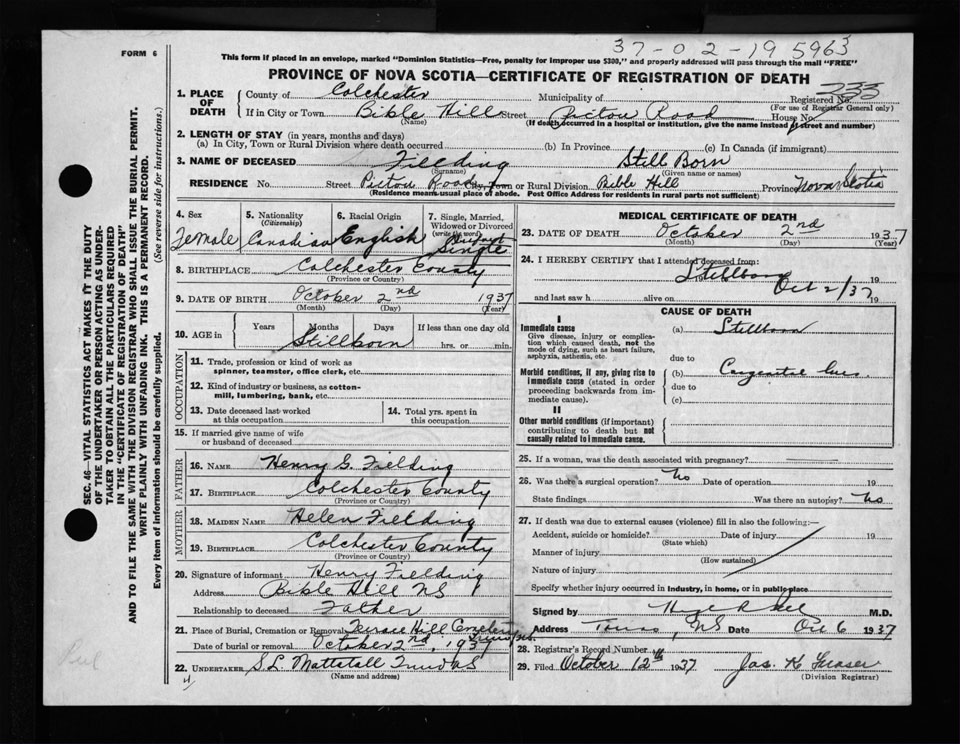 FORM 6
37-02-195963
This form if placed in an envelope, marked "Dominion Statistics—Free, penalty for improper use $300," and properly addressed will pass through the mail "FREE"
PROVINCE OF NOVA SCOTIA—CERTIFICATE OF REGISTRATION OF DEATH
1. PLACE OF DEATH County of Colchester Municipality of Registered No. 233
(For use of Registrar General only)
If in City or Town. Bible Hill Street Pictou Road House No.
(Name) (If death occurred in a hospital or institution, give the name instead of street and number)
2. LENGTH OF STAY (in years, months and days)
(a) In City, Town or Rural Division where death occurred (b) In Province (c) In Canada (if immigrant)
3. NAME OF DECEASED Fielding Still Born
(Surname) (Given name or names)
RESIDENCE No. Street Pictou Road City, Town or Rural Division. Bible Hill Province Nova Scotia
(Residence means usual place of abode. Post Office Address for residents in rural parts not sufficient)
4. Sex Female
5. Nationality (Citizenship) Canadian
6. Racial Origin English
7. Single, Married, Widowed or Divorced (write the word) Single
8. BIRTHPLACE Colchester County
(Province or Country)
9. DATE OF BIRTH October 2nd 1937
(Month) (Day) (Year)
10. AGE in Years Months Days If less than one day old
Stillborn hrs. or min.
OCCUPATION
11. Trade, profession or kind of work as spinner, teamster, office clerk, etc.
12. Kind of industry or business, as cotton-mill, lumbering, bank, etc.
13. Date deceased last worked at this occupation
14. Total yrs. spent in this occupation
15. If married give name of wife or husband of deceased
FATHER
16. NAME Henry G. Fielding
17. BIRTHPLACE Colchester County
(Province or Country)
MOTHER
18. MAIDEN NAME Helen Fielding
19. BIRTHPLACE Colchester County
(Province or Country)
20. Signature of informant Henry Fielding
Address Bible Hill NS
Relationship to deceased Father
21. Place of Burial, Cremation or Removal Terrace Hill Cemetery Truro
Date of burial or removal October 2nd, 1937
22. UNDERTAKER S.L. Mattatall Truro NS
(Name and address)
MEDICAL CERTIFICATE OF DEATH
23. DATE OF DEATH October 2nd 1937
(Month) (Day) (Year)
24. I HEREBY CERTIFY that I attended deceased from:
Stillborn Oct 2/37 19
and last saw h alive on 19
CAUSE OF DEATH
I
Immediate cause
Give disease, injury or complication which caused death, not the mode of dying, such as heart failure, asphyxia, asthenia, etc.
(a) Stillborn
due to
Morbid conditions, if any, giving rise to immediate cause (stated in order proceeding backwards from immediate cause).
(b) Congenital
due to
(c)
II
Other morbid conditions (if important) contributing to death but not causally related to immediate cause.
25. If a woman, was the death associated with pregnancy?
26. Was there a surgical operation? No Date of operation 19
State findings Was there an autopsy? No
27. If death was due to external causes (violence) fill in also the following:—
Accident, suicide or homicide? Date of injury 19
(State which)
Manner of injury
(How sustained)
Nature of injury
Specify whether injury occurred in industry, in home, or in public place
Signed by M.D.
Address Truro, NS Date Oct 6 1937
28. Registrar's Record Number
29. Filed October 12th 1937 Jas. K Fraser
(Division Registrar)
SEC. 46—VITAL STATISTICS ACT MAKES IT THE DUTY
OF THE UNDERTAKER OR PERSON ACTING AS UNDER-
TAKER TO OBTAIN ALL THE PARTICULARS REQUIRED
IN THE "CERTIFICATE OF REGISTRATION OF DEATH"
AND TO FILE THE SAME WITH THE DIVISION REGISTRAR WHO SHALL ISSUE THE BURIAL PERMIT.
WRITE PLAINLY WITH UNFADING INK. THIS IS A PERMANENT RECORD.
Every item of information should be carefully supplied. (See reverse side for instructions.)